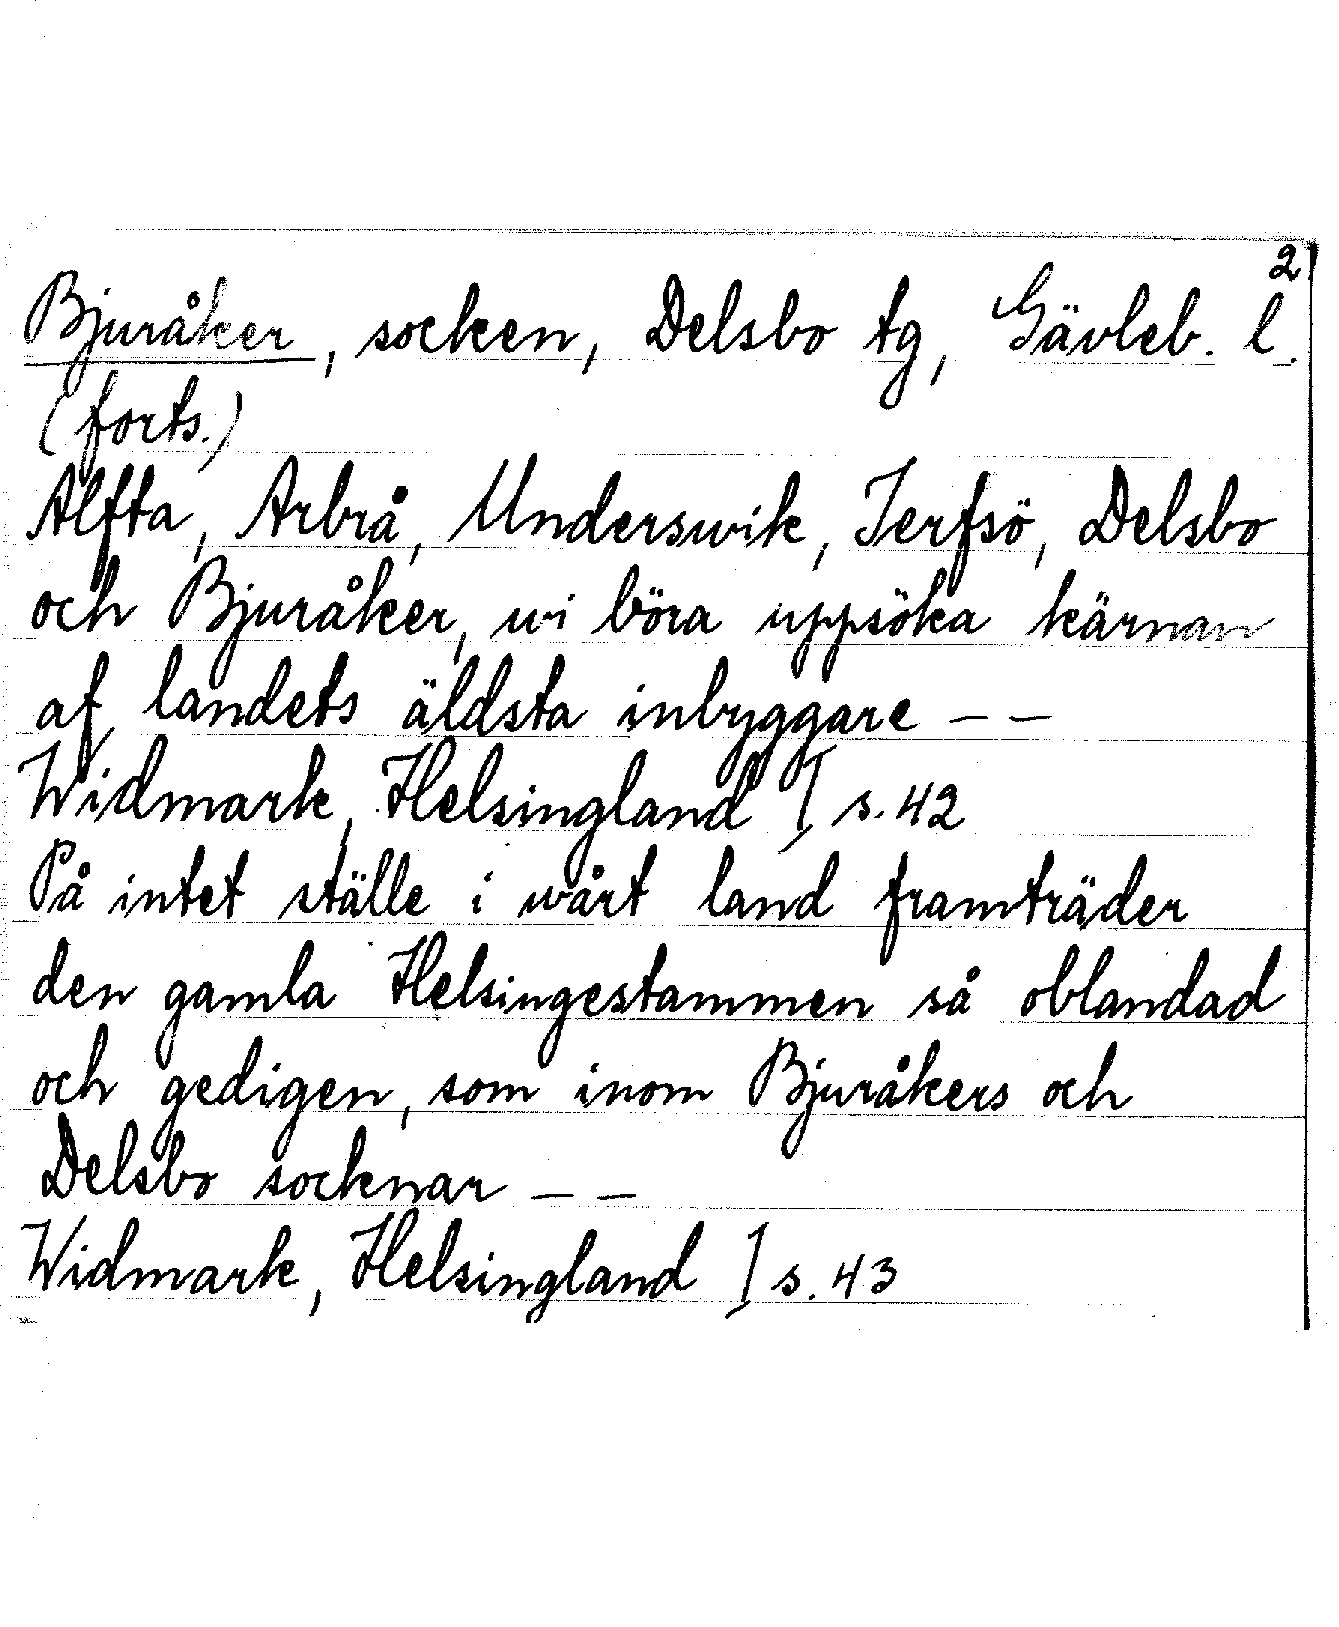 2
Bjuråker, socken, Delsbo tg, Gävleb. l.
(forts.)
Alfta, Arbrå, Underswik, Jerfsö, Delsbo
och Bjuråker, wi böra uppsöka kärnan
af landets äldsta inbyggare – –
Widmark, Helsingland I s. 42
På intet ställe i wårt land framträder
den gamla Helsingestammen så oblandad
och gedigen, som inom Bjuråkers och
Delsbo socknar – –
Widmark, Helsingland I s. 43